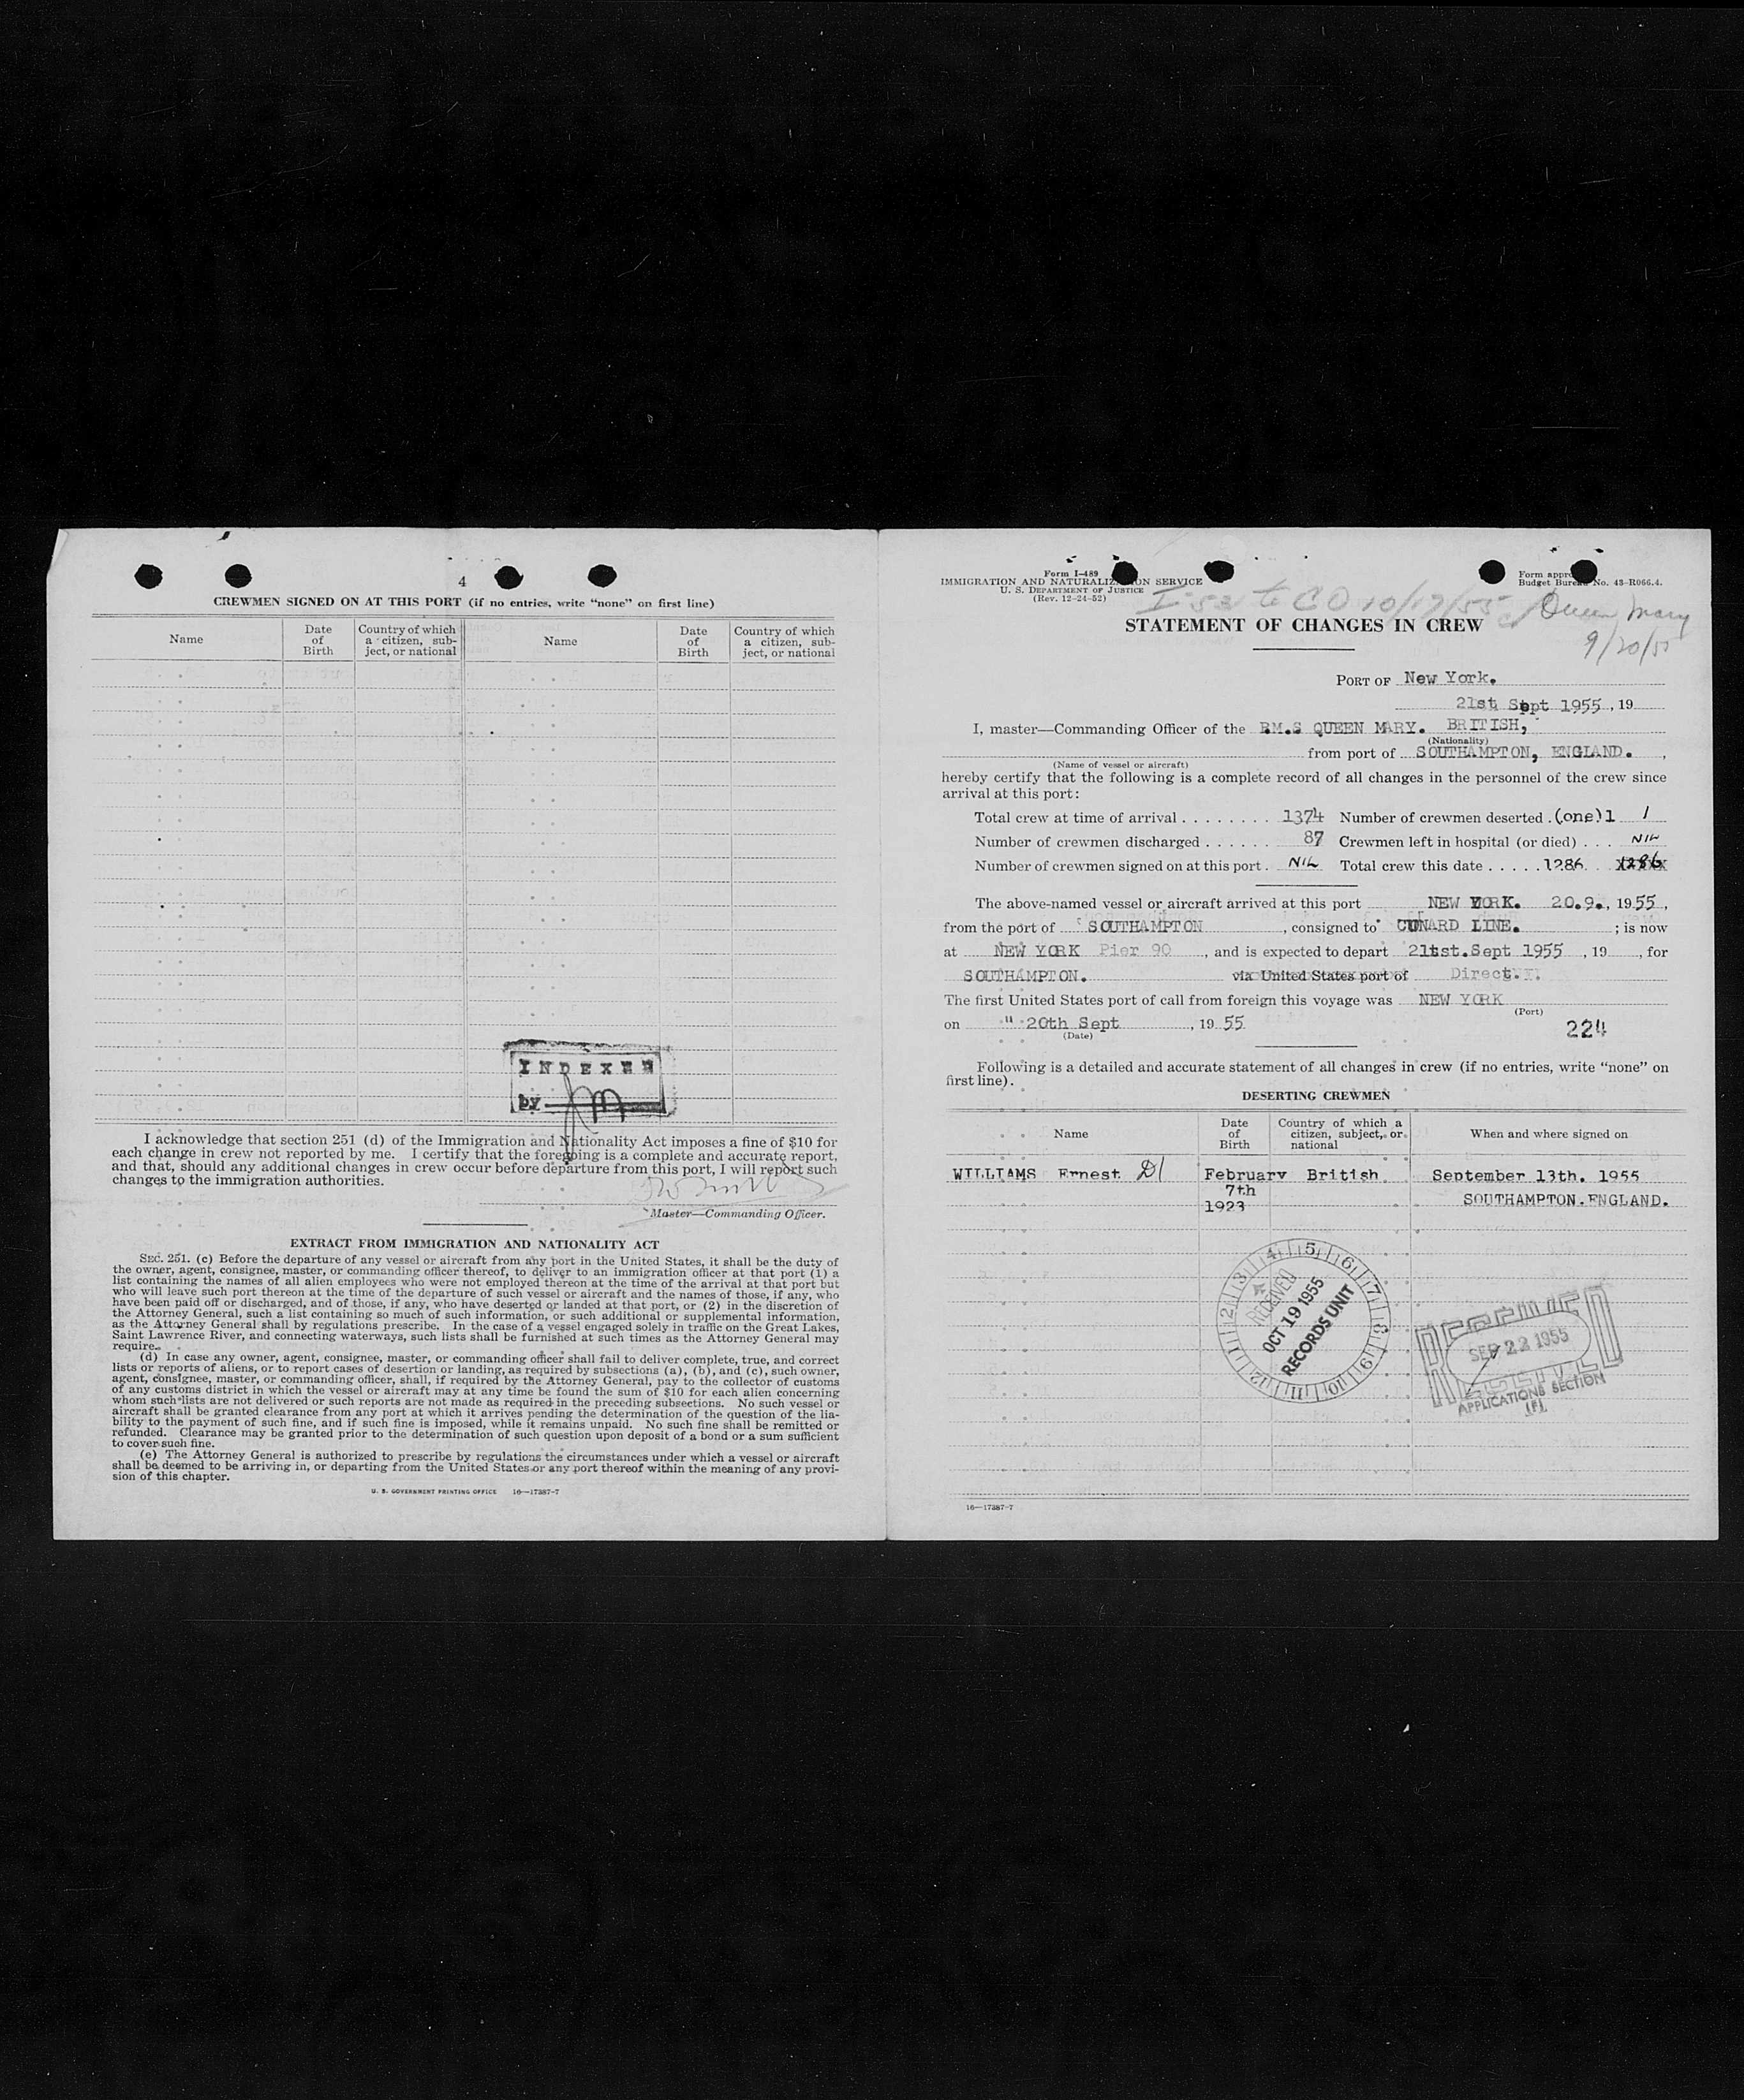 4
CREWMEN SIGNED ON AT THIS PORT (if no entries, write “none” on first line)
Name
Date of Birth
Country of which a citizen, subject, or national
Name
Date of Birth
Country of which a citizen, subject, or national
INDEXED
by
I acknowledge that section 251 (d) of the Immigration and Nationality Act imposes a fine of $10 for
each change in crew not reported by me. I certify that the foregoing is a complete and accurate report,
and that, should any additional changes in crew occur before departure from this port, I will report such
changes to the immigration authorities.
Master—Commanding Officer.
EXTRACT FROM IMMIGRATION AND NATIONALITY ACT
SEC. 251. (c) Before the departure of any vessel or aircraft from any port in the United States, it shall be the duty of
the owner, agent, consignee, master, or commanding officer thereof, to deliver to an immigration officer at that port (1) a
list containing the names of all alien employees who were not employed thereon at the time of the arrival at that port but
who will leave such port thereon at the time of the departure of such vessel or aircraft and the names of those, if any, who
have been paid off or discharged, and of those, if any, who have deserted or landed at that port, or (2) in the discretion of
the Attorney General, such a list containing so much of such information, or such additional or supplemental information,
as the Attorney General shall by regulations prescribe. In the case of a vessel engaged solely in traffic on the Great Lakes,
Saint Lawrence River, and connecting waterways, such lists shall be furnished at such times as the Attorney General may
require.
(d) In case any owner, agent, consignee, master, or commanding officer shall fail to deliver complete, true, and correct
lists or reports of aliens, or to report cases of desertion or landing, as required by subsections (a), (b), and (c), such owner,
agent, consignee, master, or commanding officer, shall, if required by the Attorney General, pay to the collector of customs
of any customs district in which the vessel or aircraft may at any time be found the sum of $10 for each alien concerning
whom such lists are not delivered or such reports are not made as required in the preceding subsections. No such vessel or
aircraft shall be granted clearance from any port at which it arrives pending the determination of the question of the lia-
bility to the payment of such fine, and if such fine is imposed, while it remains unpaid. No such fine shall be remitted or
refunded. Clearance may be granted prior to the determination of such question upon deposit of a bond or a sum sufficient
to cover such fine.
(e) The Attorney General is authorized to prescribe by regulations the circumstances under which a vessel or aircraft
shall be deemed to be arriving in, or departing from the United States or any port thereof within the meaning of any provi-
sion of this chapter.
U. S. GOVERNMENT PRINTING OFFICE 16—17387-7
Form I-489
IMMIGRATION AND NATURALIZATION SERVICE
U. S. DEPARTMENT OF JUSTICE
(Rev. 12-24-52)
Form appro
Budget Bureau No. 43-R066.4.
to CO 10/17/55
Queen Mary
9/20/55
STATEMENT OF CHANGES IN CREW
PORT OF New York.
21st Sept 1955, 19
I, master—Commanding Officer of the RM.S QUEEN MARY. BRITISH,
(Nationality)
from port of SOUTHAMPTON, ENGLAND. ,
(Name of vessel or aircraft)
hereby certify that the following is a complete record of all changes in the personnel of the crew since
arrival at this port:
Total crew at time of arrival . . . . . . . . 1374 Number of crewmen deserted . (one) 1 1
Number of crewmen discharged . . . . . . 87 Crewmen left in hospital (or died) . . . NIL
Number of crewmen signed on at this port . NIL Total crew this date . . . . . 1286 1286
The above-named vessel or aircraft arrived at this port NEW YORK. 20.9., 1955,
from the port of SOUTHAMPTON , consigned to CUNARD LINE. ; is now
at NEW YORK Pier 90 , and is expected to depart 21st.Sept 1955 , 19 , for
SOUTHAMPTON. via United States port of Direct.
The first United States port of call from foreign this voyage was NEW YORK
(Port)
on " 20th Sept , 19 55
(Date)
224
Following is a detailed and accurate statement of all changes in crew (if no entries, write “none” on
first line).
DESERTING CREWMEN
Name
Date of Birth
Country of which a citizen, subject, or national
When and where signed on
WILLIAMS Ernest D1 February British September 13th. 1955
7th SOUTHAMPTON.ENGLAND.
1923
1 2 3 4 5 6 7 8 9 10 11 12
RECEIVED
OCT 19 1955
RECORDS UNIT
RECEIVED
SEP 22 1955
APPLICATIONS SECTION
16—17387-7